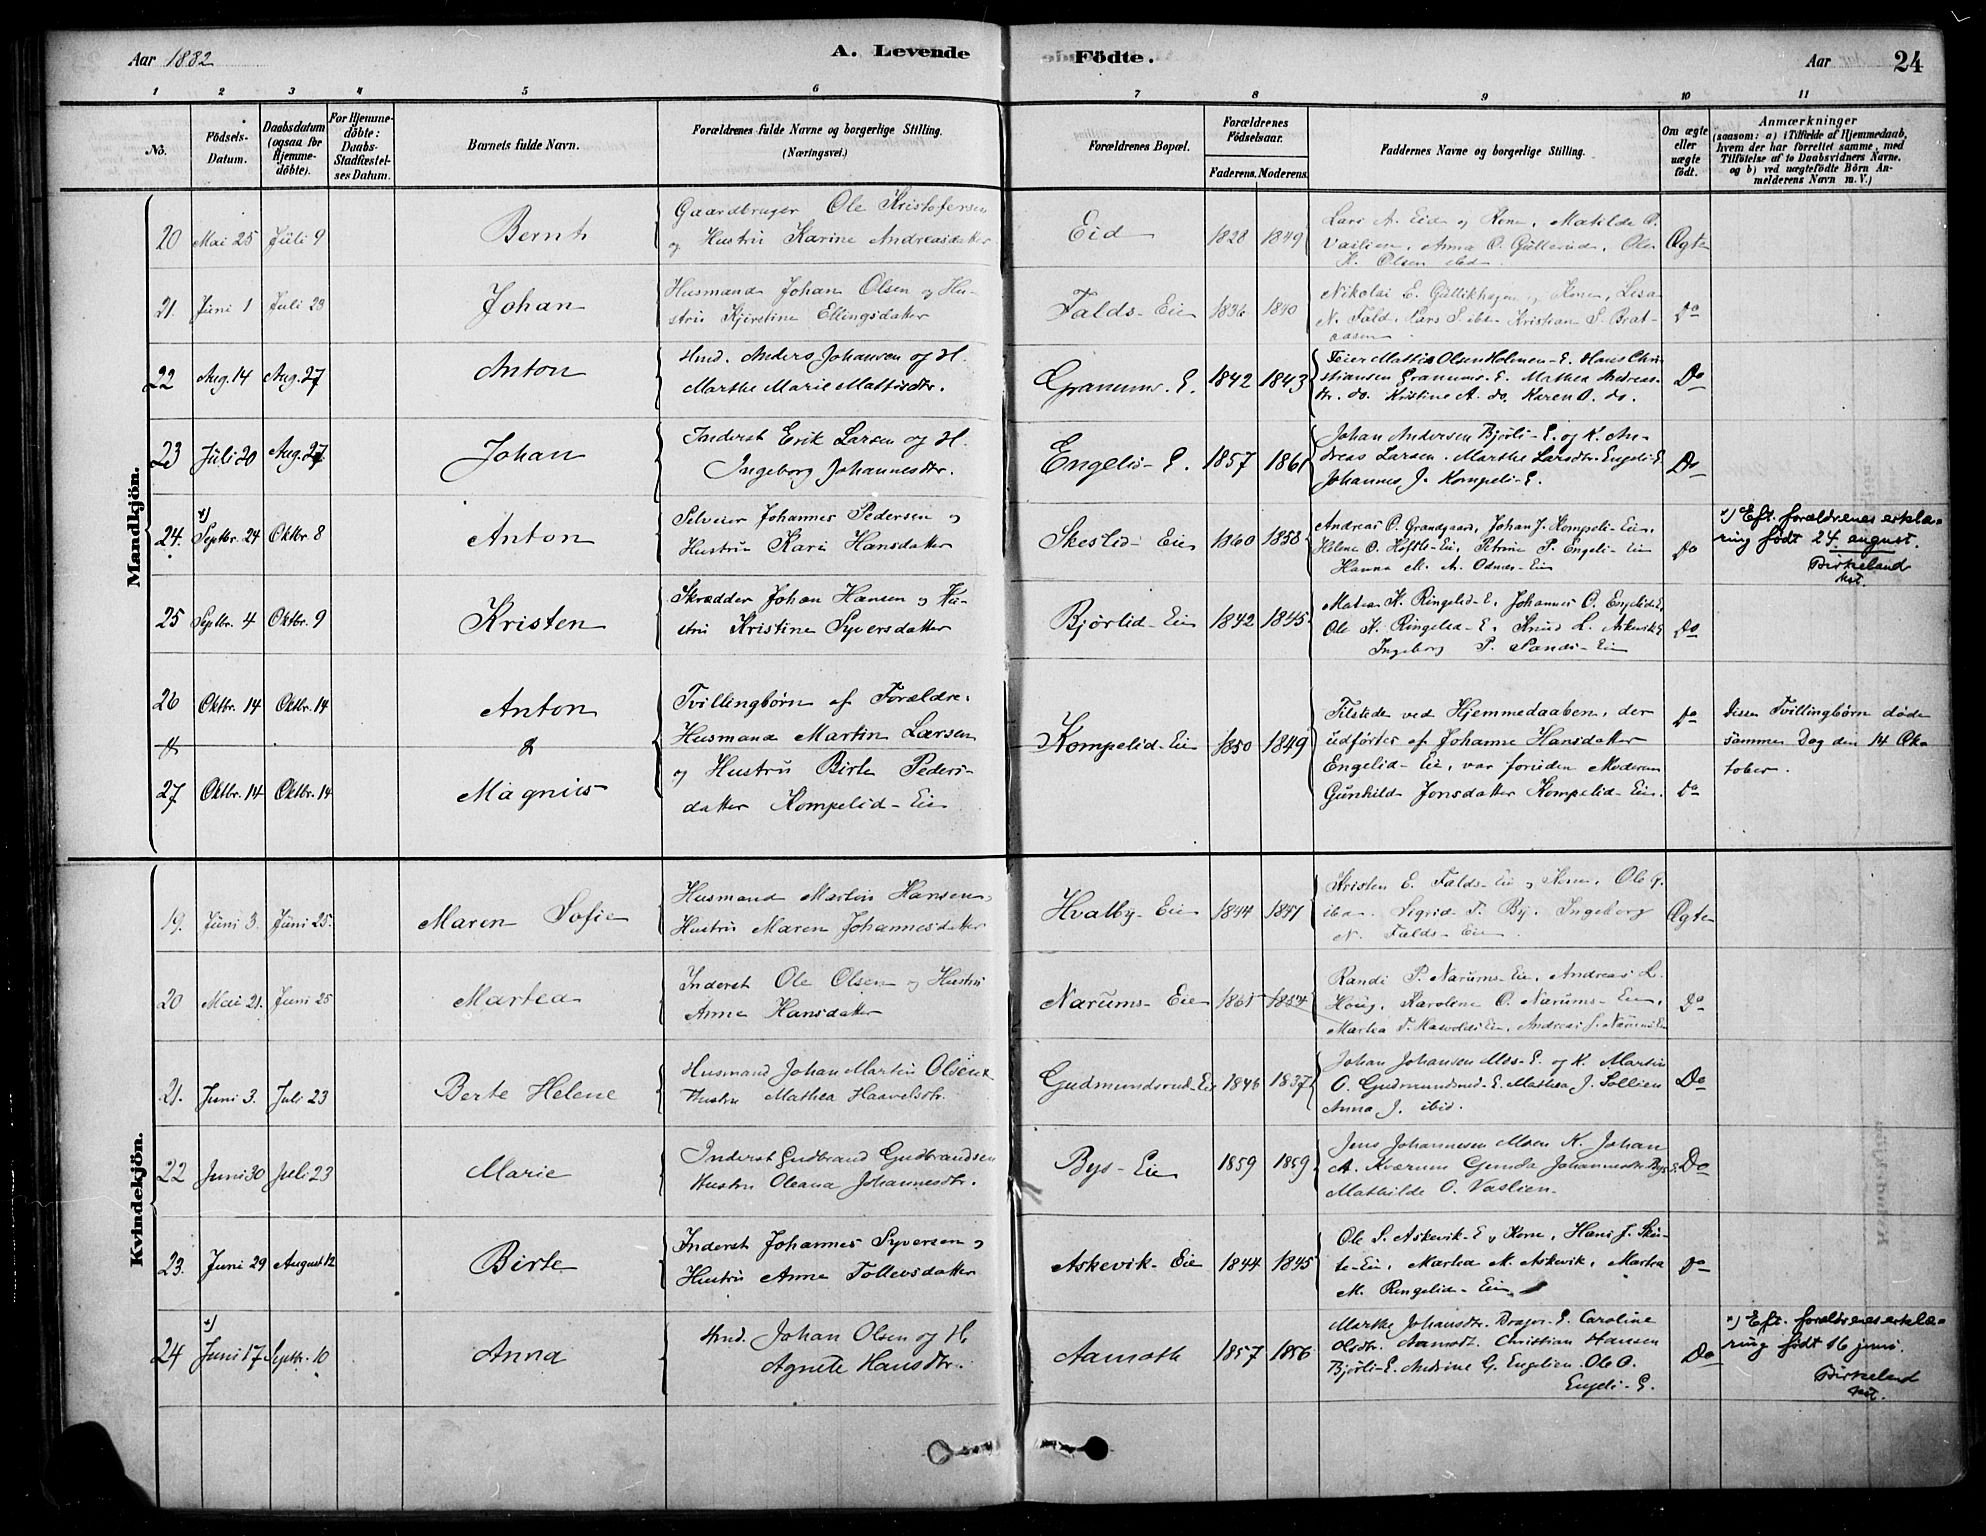 Aar 1882
A. Levende Födte.
Aar
24
1 2 3 4 5 6 7 8 9 10 11
No.
Födsels-Datum.
Daabsdatum (ogsaa for Hjemme-döbte).
For Hjemme-döbte: Daabs-Stadfæstel-ses Datum.
Barnets fulde Navn.
Forældrenes fulde Navne og borgerlige Stilling. (Næringsvei.)
Forældrenes Bopæl.
Forældrenes Födselsaar.
Faderens. Moderens.
Faddernes Navne og borgerlige Stilling.
Om ægte eller uægte födt.
Anmærkninger
(saasom: a) i Tilfælde af Hjemmedaab,
hvem der har forrettet samme, med
Tilföielse af to Daabsvidners Navne.
og b) ved uægtefödte Börn An-
melderens Navn m. V.)
Mandkjön.
20 Mai 25 Juli 9 Bernt
Gaardbruger Ole Kristofersen
og Hustru Karine Andreasdatter
Eid 1828 1849
Lars A. Eid og Kone, Matilde O.
Vaslien, Anna O. Gullerud, Ole
K. Olsen ibd.
Ægte
21. Juni 1 Juli 23 Johan
Husmand Johan Olsen og Hu-
stru Kjerstine Ellingsdatter
Falds-Eie 1836 1840
Nikolai E. Gullikhagen og Kone, Lisa
N. Fald, Lars S. ibd Kristian S. Brat-
aasen
Do
22 Aug. 14 Aug. 27 Anton
Hmd. Anders Johansen og H.
Marthe Marie Mattisdtr.
Granums. E. 1842 1843
Feier Mattis Olsen Holmen-E. Hans Chri-
stiansen Granums-E. Mathea Andreas-
dtr. do. Kristine A. do. Karen O. do.
Do
23 Juli 20 Aug. 27. Johan
Inderst Erik Larsen og H.
Ingeborg Johannesdtr.
Engeli-E. 1857 1861
Johan Andersen Bjørli-E. og K. An-
dreas Larsen. Marthe Larsdtr. Engeli-E
Johannes J. Kompeli-E.
Do
24. x) Septbr. 24 Oktbr. 8 Anton
Selveier Johannes Pedersen og
Hustru Kari Hansdatter
Skeslid-Eie 1860 1858
Andreas P. Grandgaard, Johan J. Kompeli-Eie,
Helene O. Høftli-Eie, Petrine P. Engeli-Eie
Hanna M. A. Odnes-Eie
Do
x) Eft. forældrenes erklæ-
ring født 24. august.
Birkeland
kst.
25 Septbr. 4 Oktbr. 9 Kristen
Skrædder Johan Hansen og Hu-
stru Kristine Syversdatter
Bjørlid-Eie 1842 1845
Matea K. Ringelid-E, Johannes O. Engelid-E,
Ole K. Ringelid-E. Knud L. Askevik-E
Ingeborg P. Sands-Eie
Do
26 Oktbr. 14 Oktbr. 14 Anton
&
27 Oktbr. 14 Oktbr. 14 Magnus
Tvillingbørn af Forældre:
Husmand Martin Larsen
og Hustru Birte Peders-
datter Kompelid-Eie
Kompelid-Eie 1850 1849
Tilstede ved Hjemmedaaben, der
udførtes af Johanne Hansdatter
Engelid-Eie, var foruden Moderen
Gunhild Jonsdatter Kompelid-Eie.
Do
Do
Disse Tvillingbørn døde
samme Dag den 14 Ok-
tober.
Kvindekjön.
19. Juni 3. Juni 25. Maren Sofie
Husmand Martin Hansen,
Hustru Maren Johannesdatter
Hvalby-Eie 1844 1841
Kristen E. Falds-Eie og Kone, Ole P.
ibd. Sigrid T. By, Ingeborg
N. Falds-Eie
Ægte
20 Mai 21. Juni 25 Martea
Inderst Ole Olsen og Hustru
Anne Hansdatter
Narums-Eie 1861 1854
Randi P. Narums-Eie, Andreas L.
Houg, Karolene O. Narums-Eie,
Martea T. Hasvolds Eie, Andreas J. Narums Eie
Do
21. Juni 3. Juli 23 Berte Helene
Husmand Johan Martin Olsen &
Hustru Mathea Haavelsdtr.
Gudmundsrud-Eie 1846 1837
Johan Johansen Moe-E. og K. Martin
O. Gudmundsrud-E. Mathea J. Sollien
Anna J. ibid.
Do
22 Juni 30 Juli 23 Marie
Inderst Gudbrand Gudbrandsen
Hustru Oleana Johannesdtr.
Bys-Eie 1859 1859
Jens Johannesen Moen K. Johan
A. Kværum Gunda Johannesdtr. Bys E.
Mathilde O. Vaslien.
Do
23. Juni 29 August 12 Birte
Inderst Johannes Syversen og
Hustru Anne Tollevsdatter
Askevik-Eie 1844 1845
Ole S. Askevik-E og Kone, Hans J. Sku-
te-Eie, Martea M. Askevik, Martea
M. Ringelid-Eie
Do
24 x) Juni 17 Septbr. 10 Anna
Hmd. Johan Olsen og H.
Agnete Hansdtr.
Aamoth 1857 1856
Marthe Johansdtr. Brager-E. Caroline
Olsdtr. Aamodt. Christian Hansen
Bjørli-E. Andrine G. Engelien. Ole O.
Engeli-E.
Do
x) Eft. forældrenes erklæ-
ring født 16 juni.
Birkeland
kst.